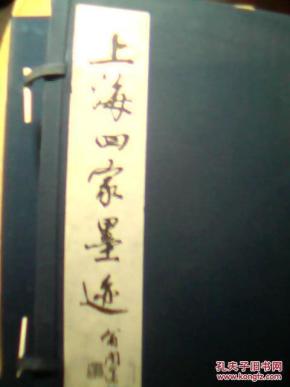 上海四家墨迹
孔夫子旧书网